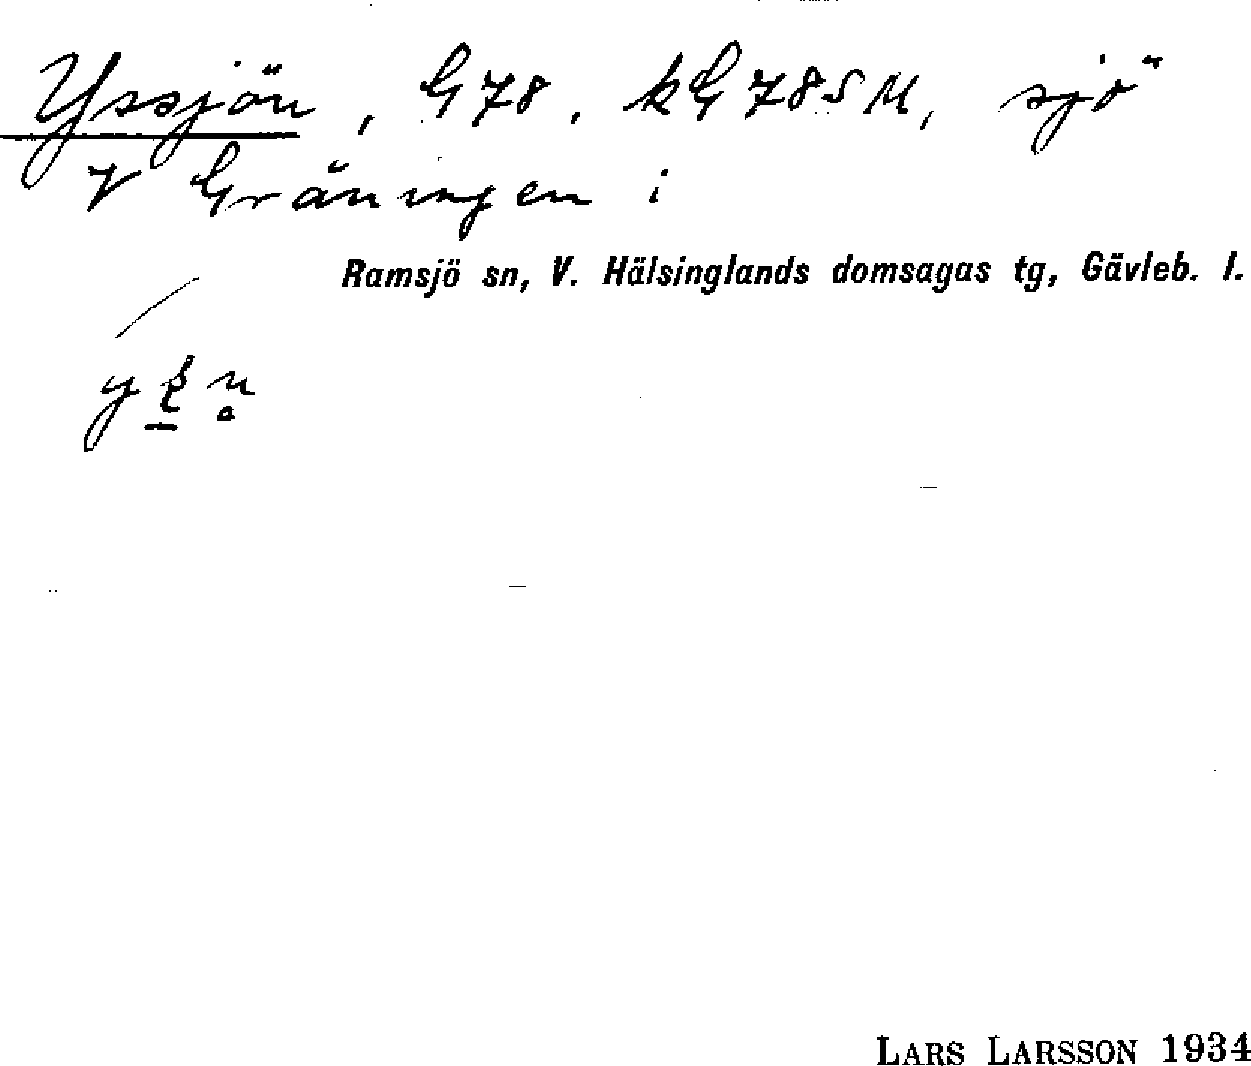 Yssjön, G78, kG78SM, sjö
V Gräningen i
Ramsjö sn, V. Hälsinglands domsagas tg, Gävleb. l.
LARS LARSSON 1934